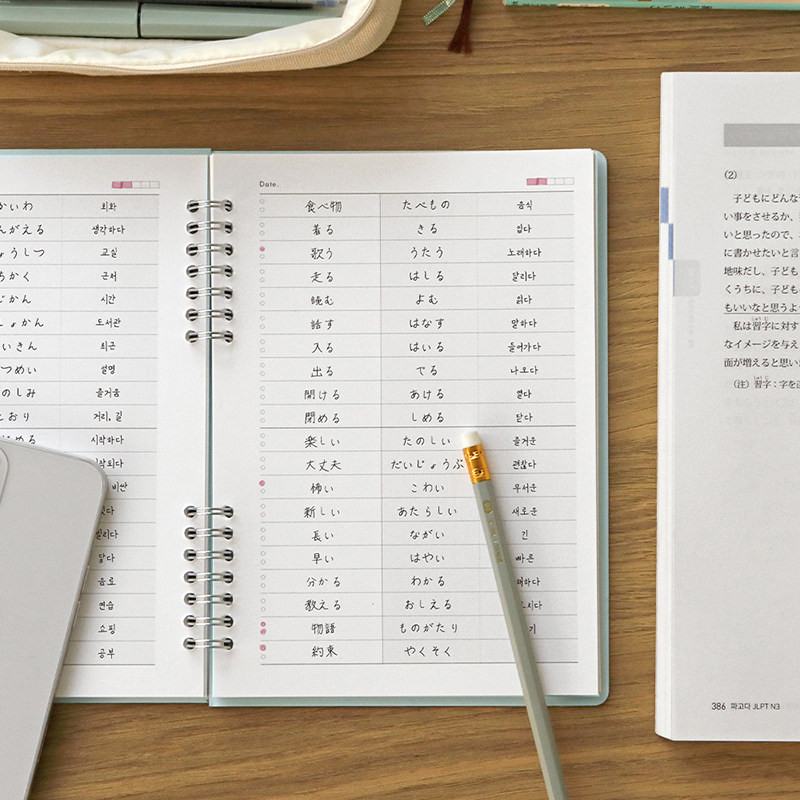 かいわ 회화
んがえる 생각하다
ょうしつ 교실
ちかく 근처
じかん 시간
しょかん 도서관
いきん 최근
つめい 설명
のしみ 즐거움
とおり 거리, 길
じめる 시작하다
작되다
비싼
쉽다
빌리다
달다
음료
연습
쇼핑
공부
Date.
食べ物 たべもの 음식
着る きる 입다
歌う うたう 노래하다
走る はしる 달리다
読む よむ 읽다
話す はなす 말하다
入る はいる 들어가다
出る でる 나오다
開ける あける 열다
閉める しめる 닫다
楽しい たのしい 즐거운
大丈夫 だいじょうぶ 괜찮다
怖い こわい 무서운
新しい あたらしい 새로운
長い ながい 긴
早い はやい 빠른
分かる わかる 해하다
教える おしえる 르시다
物語 ものがたり 기
約束 やくそく
(2)
子どもにどんな
い事をさせるか、
いと思ったので、
に書かせたいと言
地味だし、子ども
くうちに、子ども
もいいなと思うよ
私は習字に対す
なイメージを与え
面が増えると思い
（注）習字：字を正
386 파고다 JLPT N3